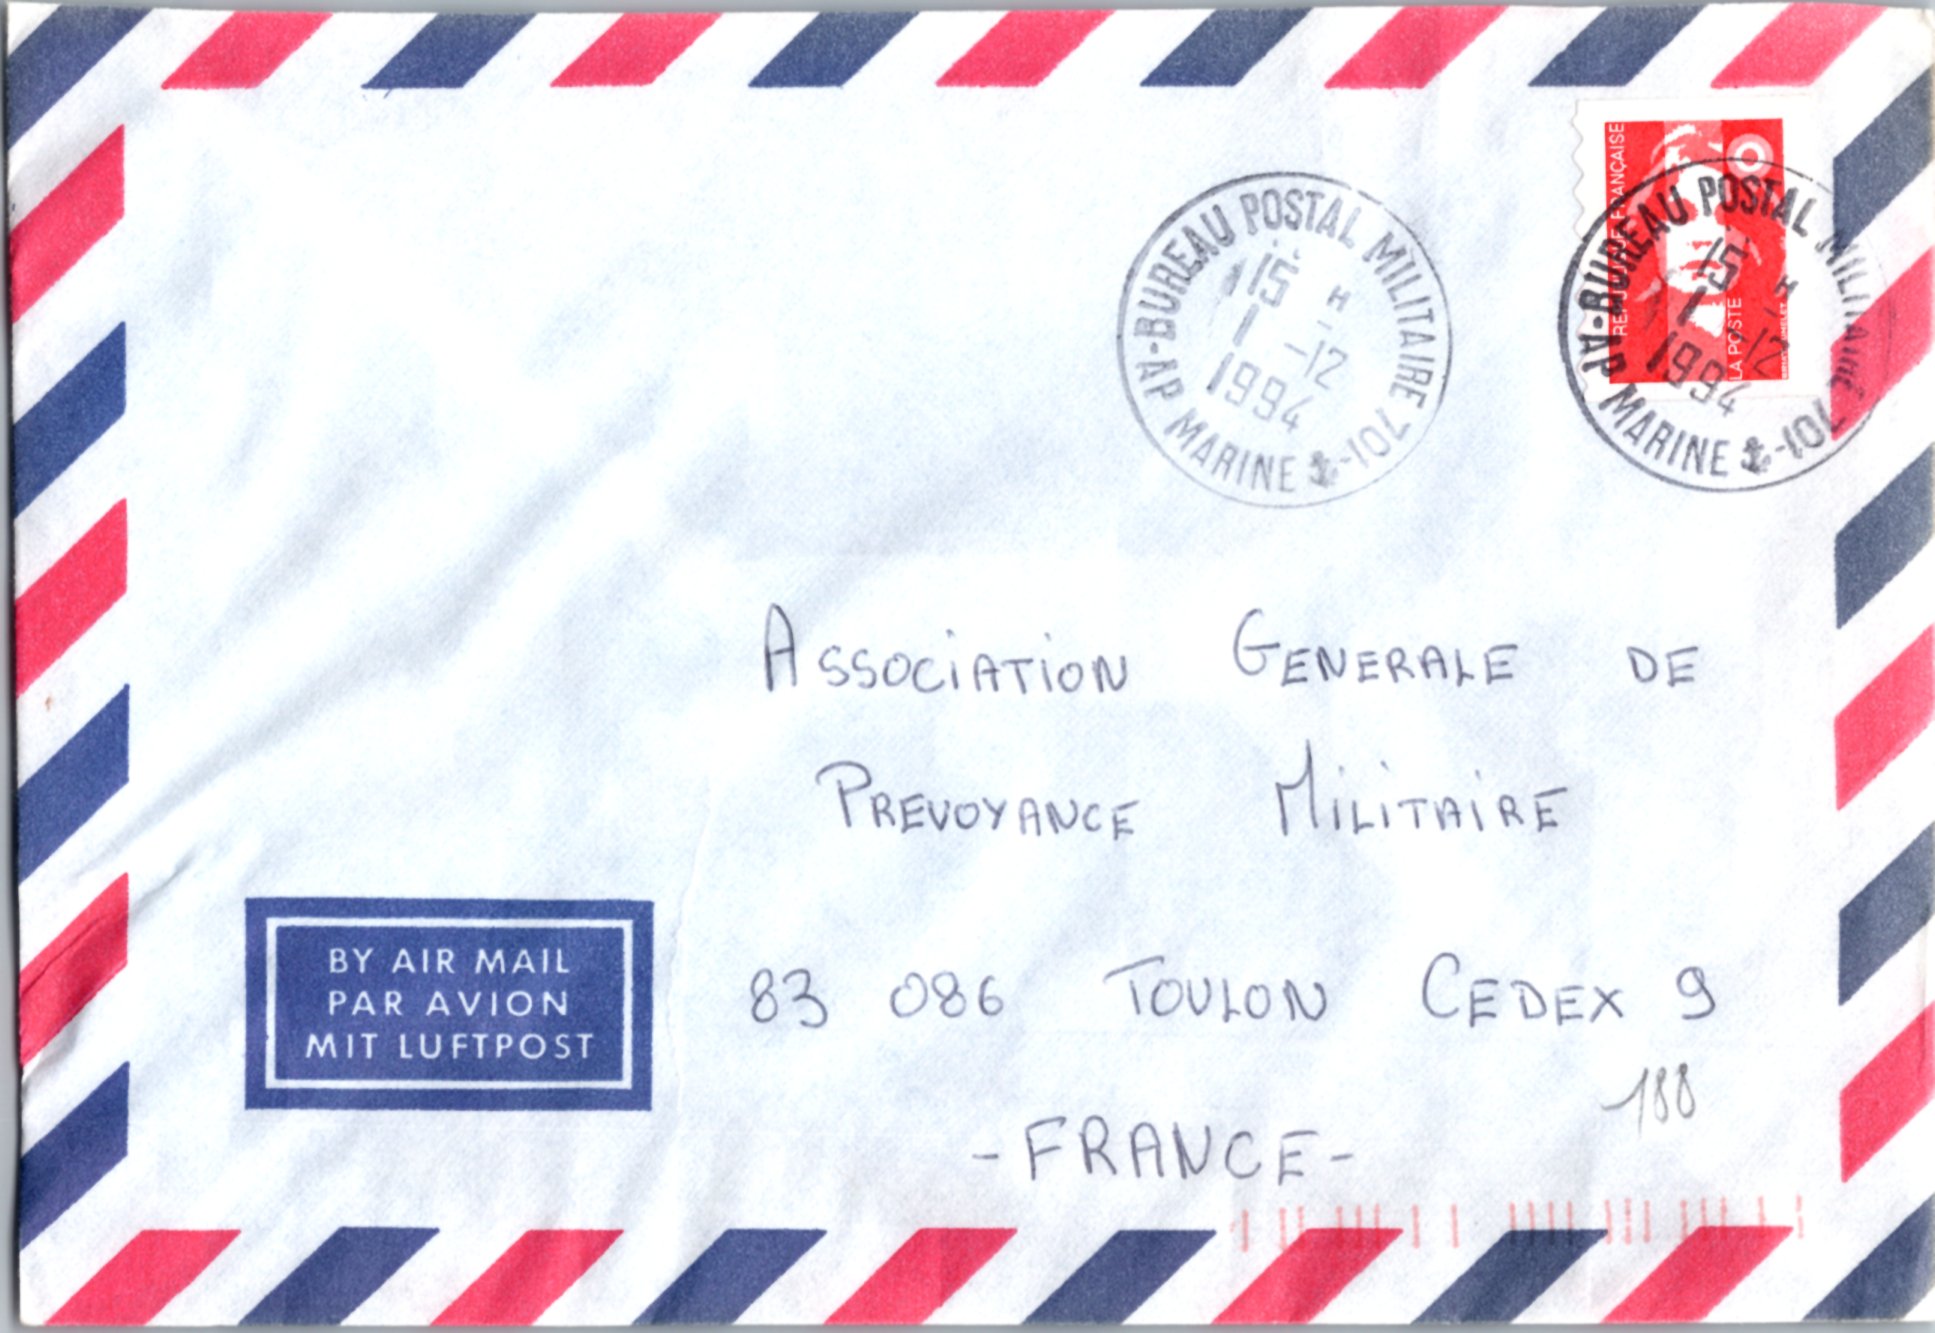 BUREAU POSTAL MILITAIRE 701-
AP MARINE
15 H
1 -12
1994
RÉPUBLIQUE FRANÇAISE
LA POSTE
BUREAU POSTAL MILITAIRE
701-
AP MARINE
15 H
1 -12
1994
ASSOCIATION GENERALE DE
PREVOYANCE MILITAIRE
83 086 TOULON CEDEX 9
188
- FRANCE -
BY AIR MAIL
PAR AVION
MIT LUFTPOST